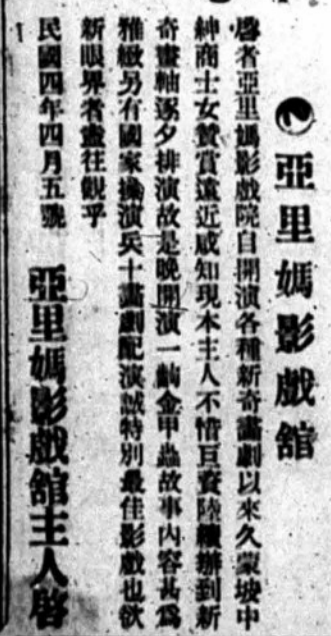 亞里媽影戲舘
啓者亞里媽影戲院自開演各種新奇畵劇以來久蒙坡中
紳商士女贊賞遠近咸知現本主人不惜巨資陸續辦到新
奇畫軸逐夕排演故是晚開演一齣金甲蟲故事內容甚爲
雅緻另有國家操演兵士畵劇配演誠特別最佳影戲也欲
新眼界者盍往觀乎
民國四年四月五號
亞里媽影戲舘主人啓